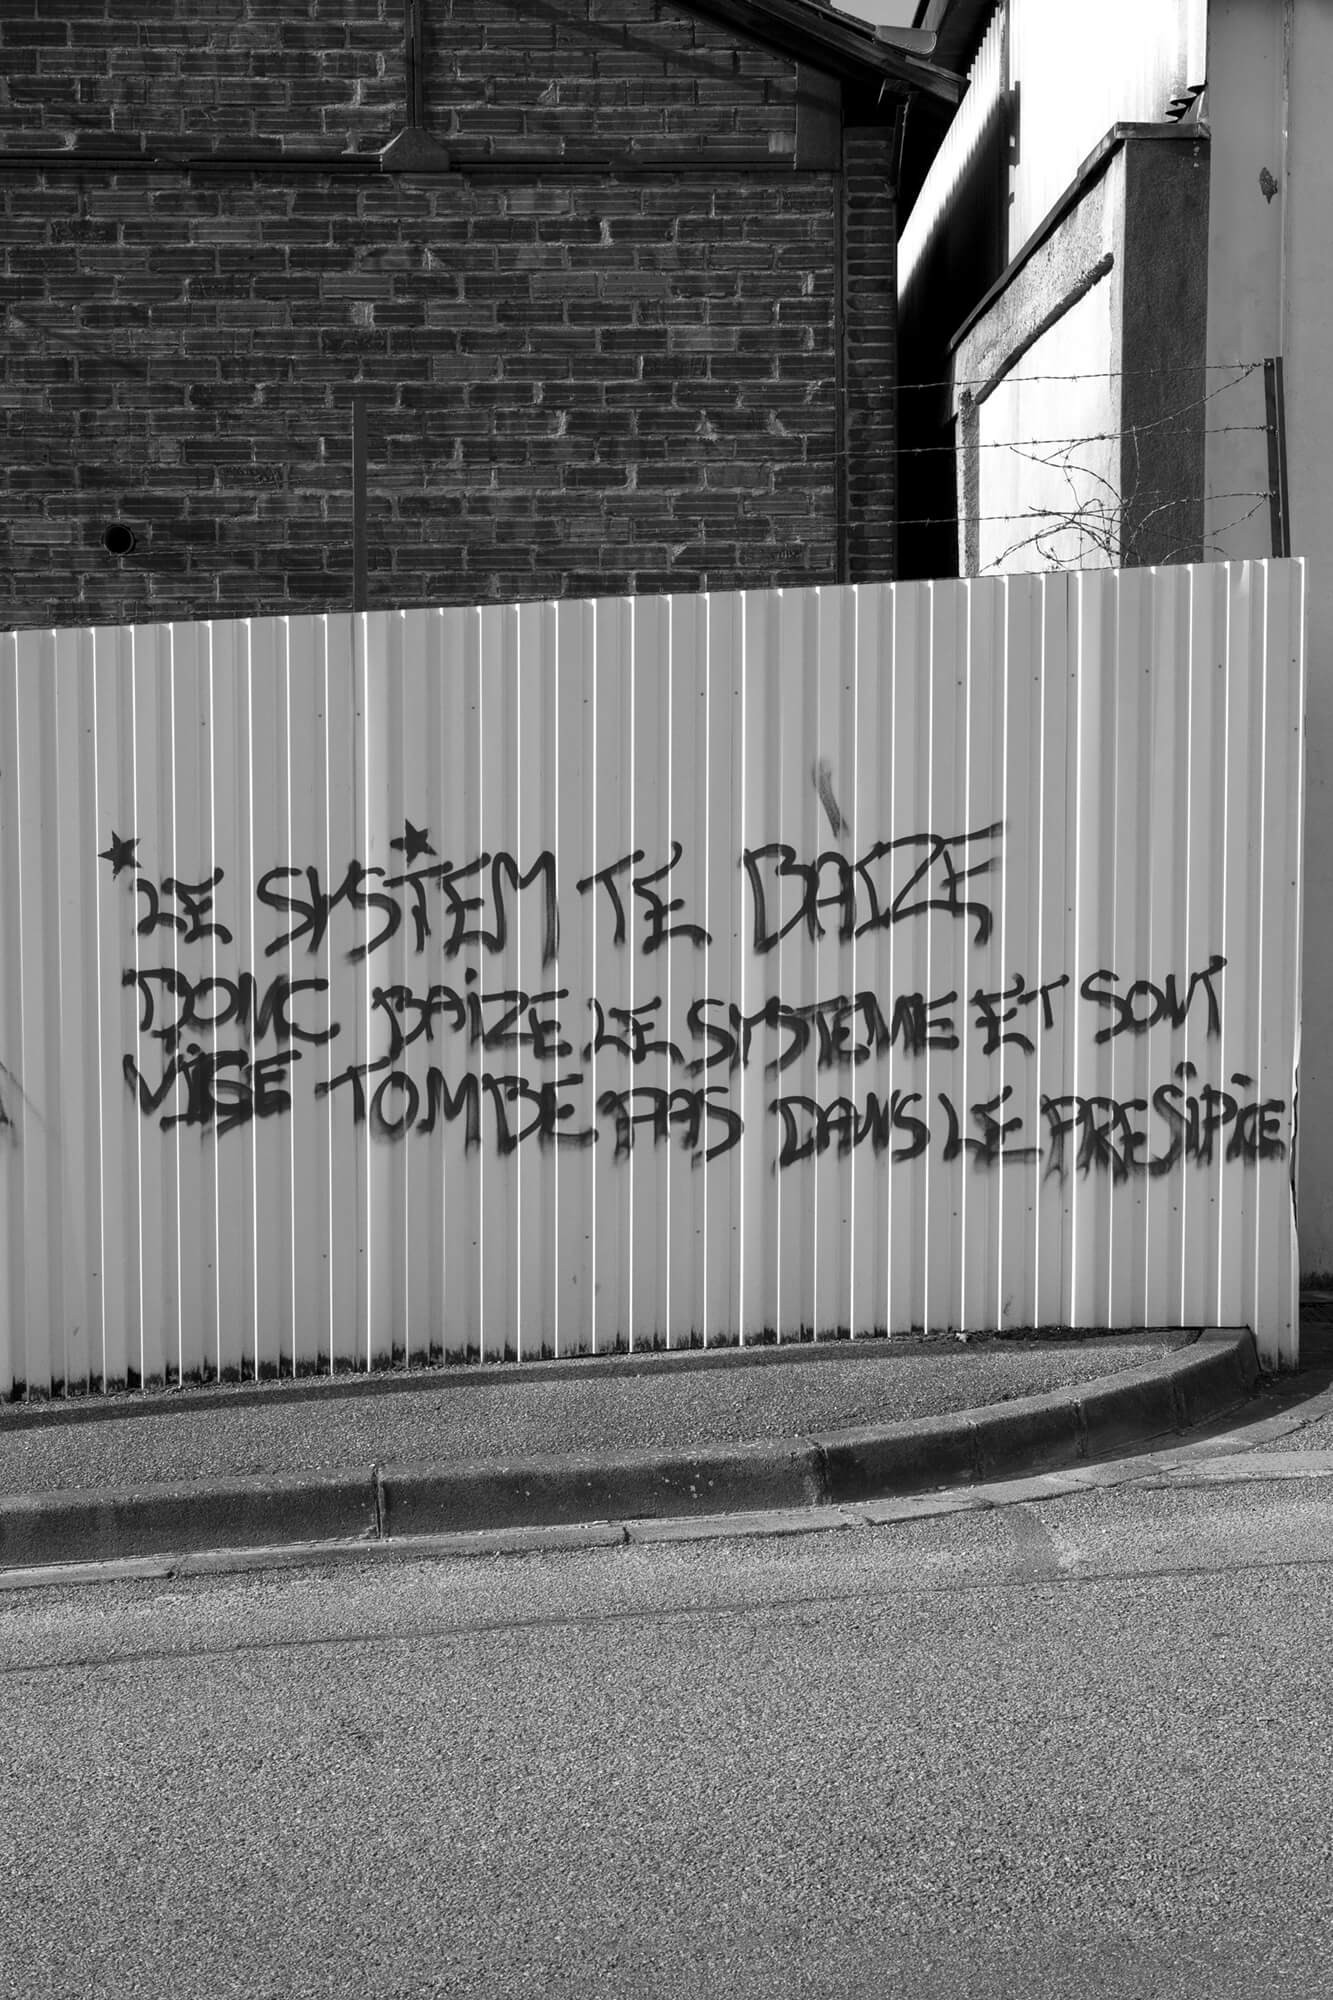 LE SYSTEM TE BAIZE
DONC BAIZE LE SYSTEME ET SONT
VISE TOMBE PAS DANS LE PRESIPICE